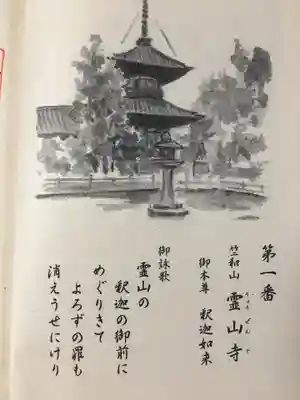 第一番
竺和山 霊山寺
りょうぜんじ
御本尊 釈迦如来
御詠歌
霊山の
釈迦の御前に
めぐりきて
よろずの罪も
消えうせにけり